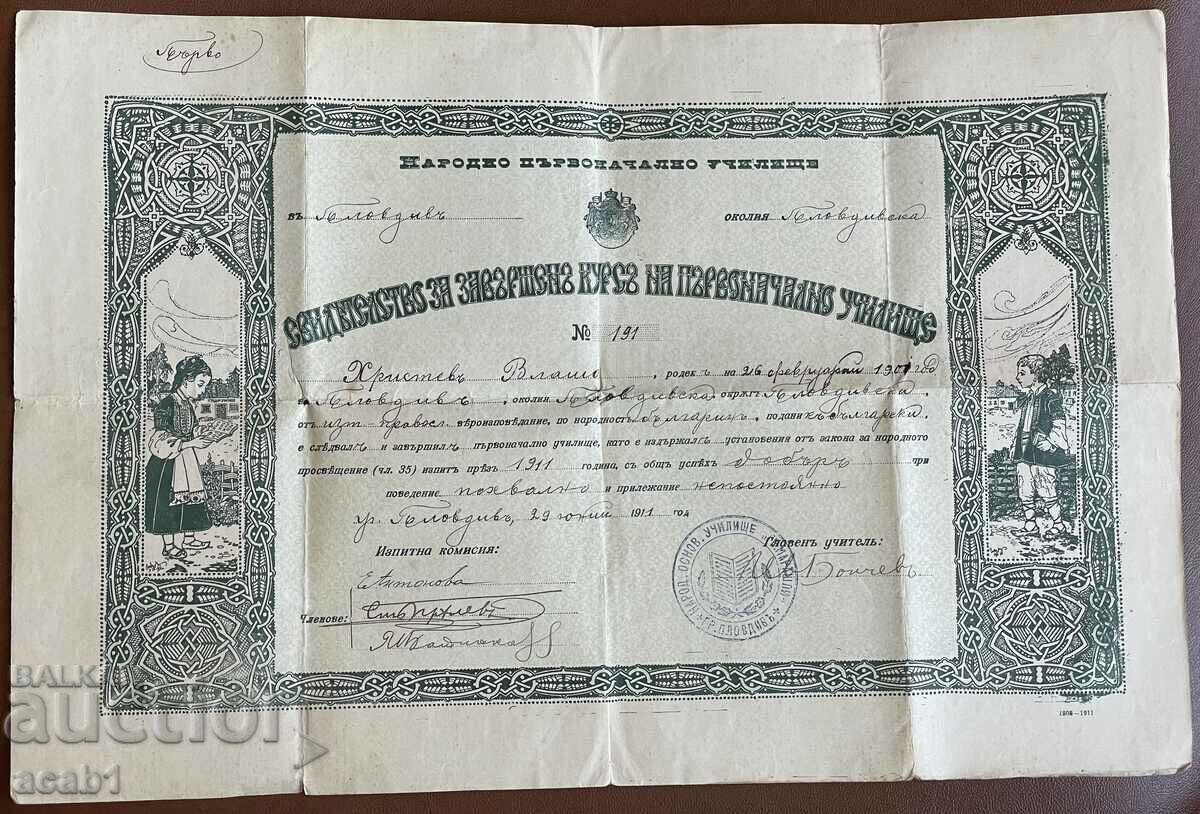 Първо
НАРОДНО ПЪРВОНАЧАЛНО УЧИЛИЩЕ
въ Пловдивъ околия Пловдивска
СВИДѢТЕЛСТВО ЗА ЗАВЪРШЕНЪ КУРСЪ НА ПЪРВОНАЧАЛНО УЧИЛИЩЕ
№ 191
Христевъ Влаши, роденъ на 26 февруарий 1901 год
Пловдивъ, околия Пловдивска, окрѫгъ Пловдивска,
отъ изт-правосл. вѣроизповѣдание, по народность българинъ, поданикъ българска,
е слѣдвалъ и завършилъ първоначално училище, като е издържалъ установения отъ закона за народното
просвѣщение (чл. 35) изпитъ прѣзъ 1911 година, съ общъ успѣхъ добъръ при
поведение похвално и прилежание непостоянно
гр. Пловдивъ, 29 юний 1911 год
Изпитна комисия: Главенъ учитель:
Е Антонова Бончевъ
Членове:
НАРОД. ОСНОВ. УЧИЛИЩЕ
ГР. ПЛОВДИВЪ
1908—1911
BALK
auction
acab1